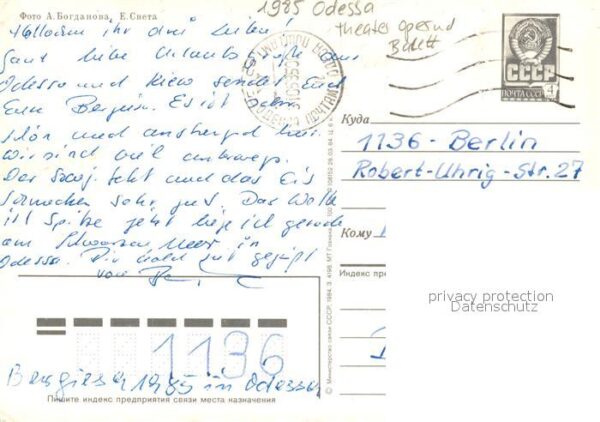 Фото А. Богданова, Е. Снета
1985 Odessa
theater Oper und
Ballett
Hallo ihr drei Lieben!
Ganz liebe Urlaubsgrüße aus
Odessa und Kiew sendet Euch
Eure Es ist
schön und anstrengend hier.
wir sind viel unterwegs.
Der Sekt und das Eis
schmecken sehr gut. Das Wetter
ist Spitze jetzt liege ich gerade
am Schwarzen Meer in
Odessa. bald
von
СССР
ПОЧТА СССР
4
Куда
1136 - Berlin
Robert-Uhrig-Str. 27
Кому
Индекс пре
privacy protection
Datenschutz
© Министерство связи СССР, 1984. З. 4198. МТ Гознака.
1136
1985 in Odessa
Пишите индекс предприятия связи места назначения